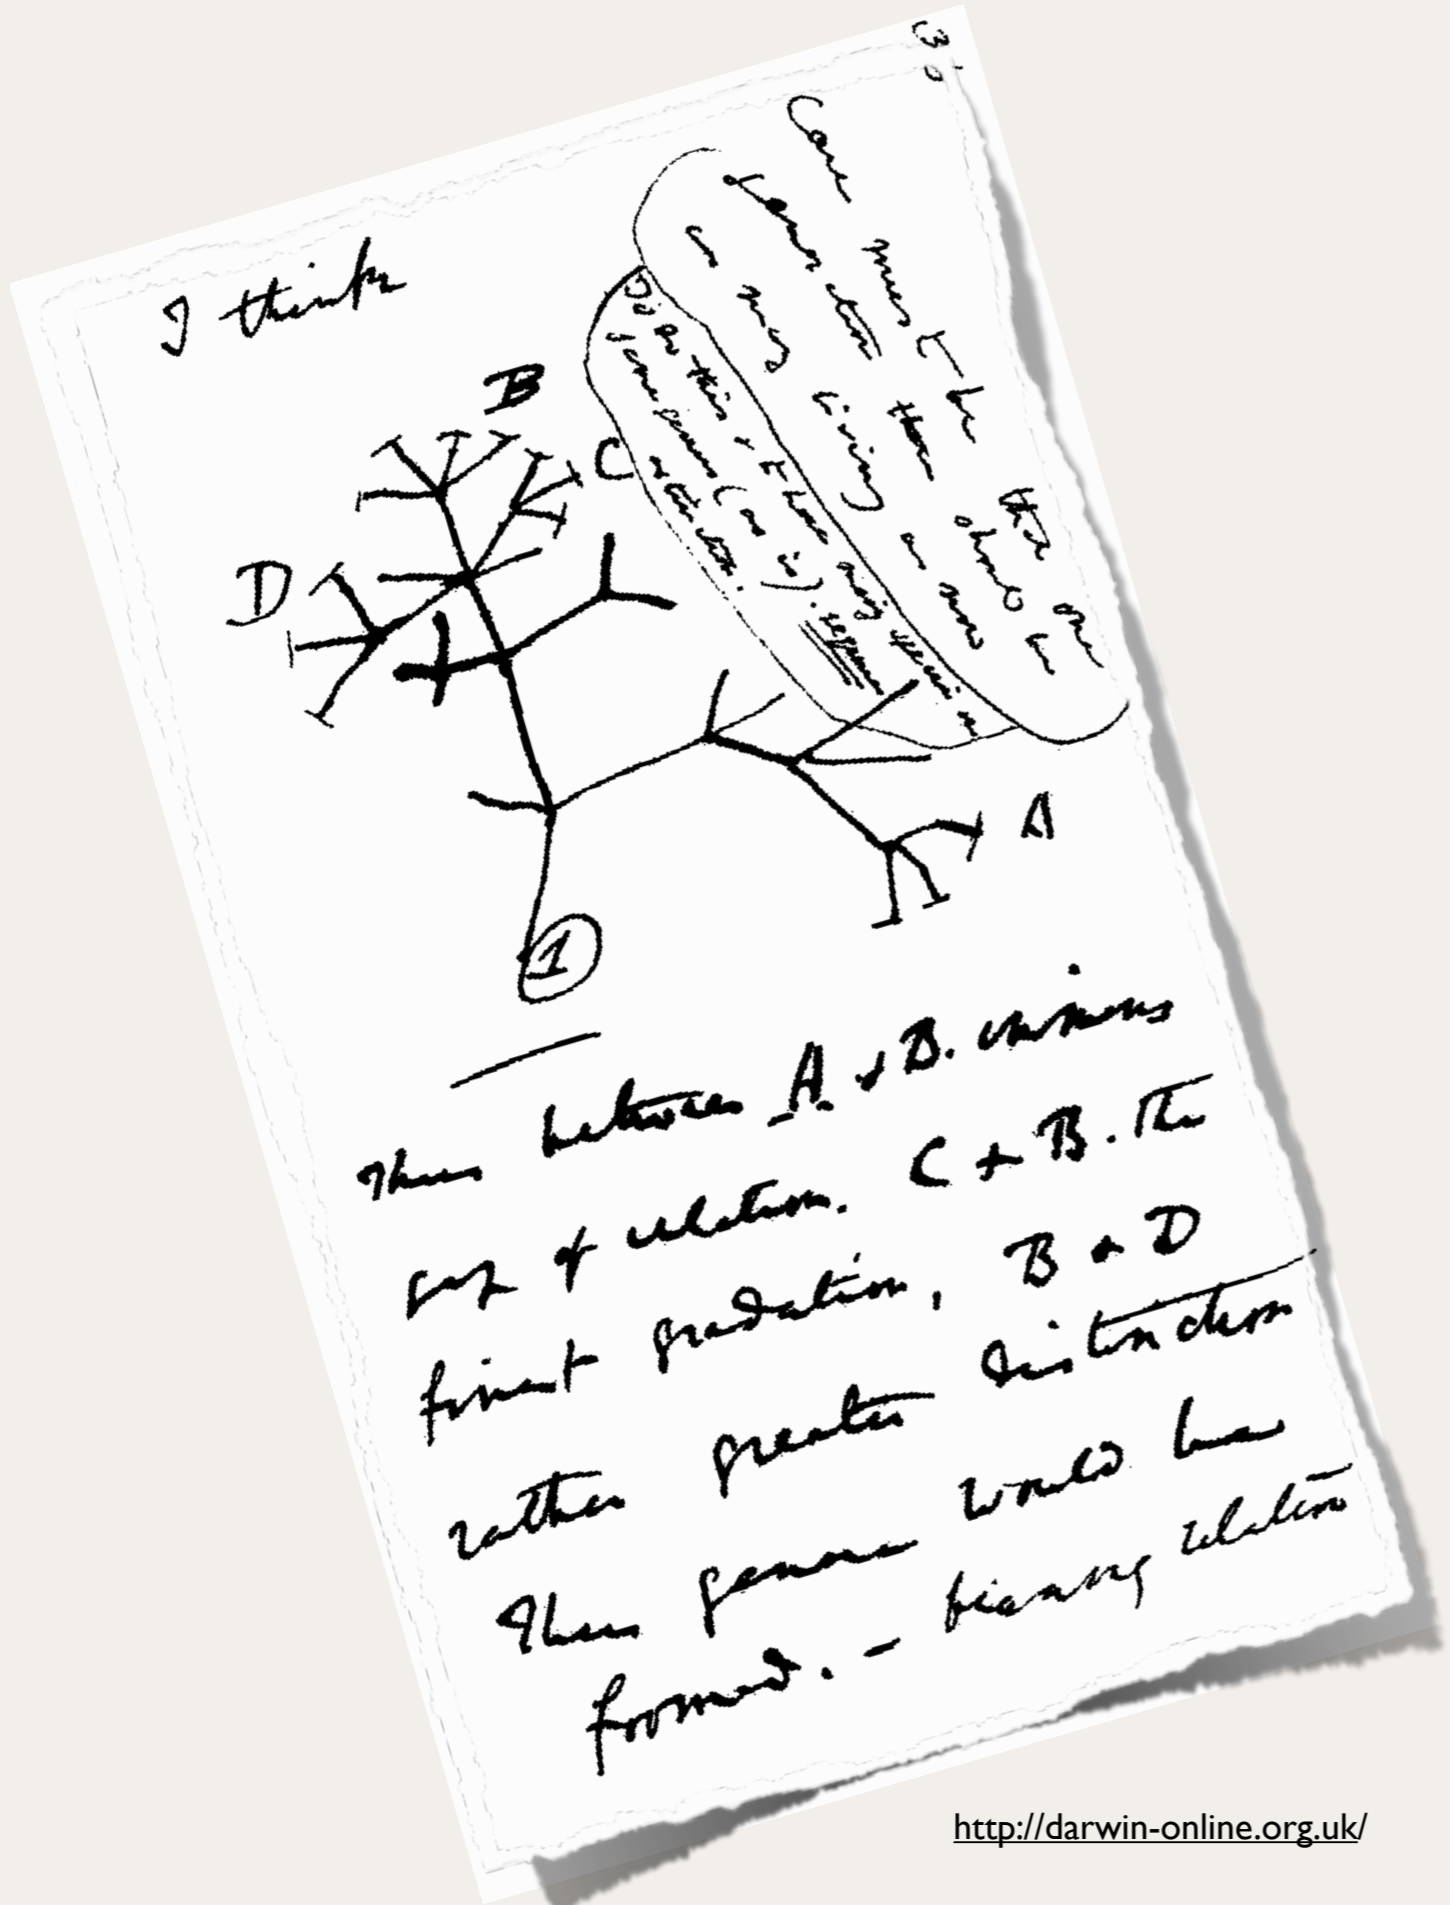 36
I think
Case must be that one
generation then should be
as many living as now
To do this & to have many species in
same genus (as is). requires
extinction.
B
C
D
A
1
Thus between A & B. immens
gap of relation. C & B. The
finest gradation, B & D
rather greater distinction
Thus genera would be
formed. — bearing relation
http://darwin-online.org.uk/